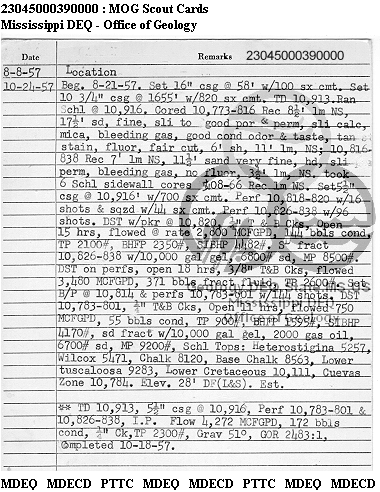 23045000390000 : MOG Scout Cards
Mississippi DEQ - Office of Geology
Date Remarks 23045000390000
8-8-57 Location
10-24-57 Beg. 8-21-57. Set 16" csg @ 58' w/100 sx cmt. Set
10 3/4" csg @ 1655' w/820 sx cmt. TD 10,913.Ran
Schl @ 10,916. Cored 10,773-816 Rec 8½' lm NS,
17½' sd, fine, sli to good por & perm, sli calc,
mica, bleeding gas, good cond odor & taste, tan
stain, fluor, fair cut, 6' sh, 11' lm, NS; 10,816-
838 Rec 7' lm NS, 11½' sand very fine, hd, sli
perm, bleeding gas, no fluor, 3½' lm NS, took
6 Schl sidewall cores, 408-66 Rec lm NS. Set5½"
csg @ 10,916' w/700 sx cmt. Perf 10,818-820 w/16
shots & sqzd w/44 sx cmt. Perf 10,826-838 w/96
shots. DST w/pkr @ 10,820, & Cks, Open
15 hrs, flowed @ rate 2,800 MCFGPD, 144 bbls cond,
TP 2100#, BHFP 2350#, SIBHP 4482#, sd fract
10,826-838 w/10,000 gal gel, 6800# sd, MP 8500#.
DST on perfs, open 18 hrs, 3/8" T&B Cks, flowed
3,480 MCFGPD, 371 bbls fract fluid, TP 2600#. Set
B/P @ 10,814 & perfs 10,783-801 w/144 shots. DST
10,783-801, ½" T&B Cks, Open 11 hrs, flowed 750
MCFGPD, 55 bbls cond, TP 900#, BHFP 1595#, SIBHP
4170#, sd fract w/10,000 gal gel, 2000 gas oil,
6700# sd, MP 9200#. Schl Tops: Heterostigina 5257,
Wilcox 5471, Chalk 8120, Base Chalk 8563, Lower
tuscaloosa 9283, Lower Cretaceous 10,111, Cuevas
Zone 10,784. Elev. 28' DF(L&S). Est.
** TD 10,913, 5½" csg @ 10,916, Perf 10,783-801 &
10,826-838, I.P. Flow 4,272 MCFGPD, 172 bbls
cond, Ck,TP 2300#, Grav 51°, GOR 2483:1,
Completed 10-18-57.
MDEQ MDECD PTTC MDEQ MDECD PTTC MDEQ MDECD